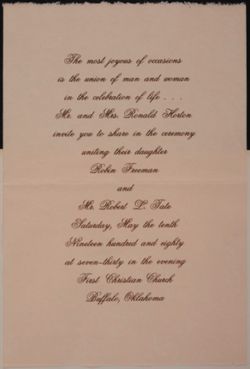 The most joyous of occasions
is the union of man and woman
in the celebration of life . . .
Mr. and Mrs. Ronald Horton
invite you to share in the ceremony
uniting their daughter
Robin Freeman
and
Mr. Robert L. Tate
Saturday, May the tenth
Nineteen hundred and eighty
at seven-thirty in the evening
First Christian Church
Buffalo, Oklahoma